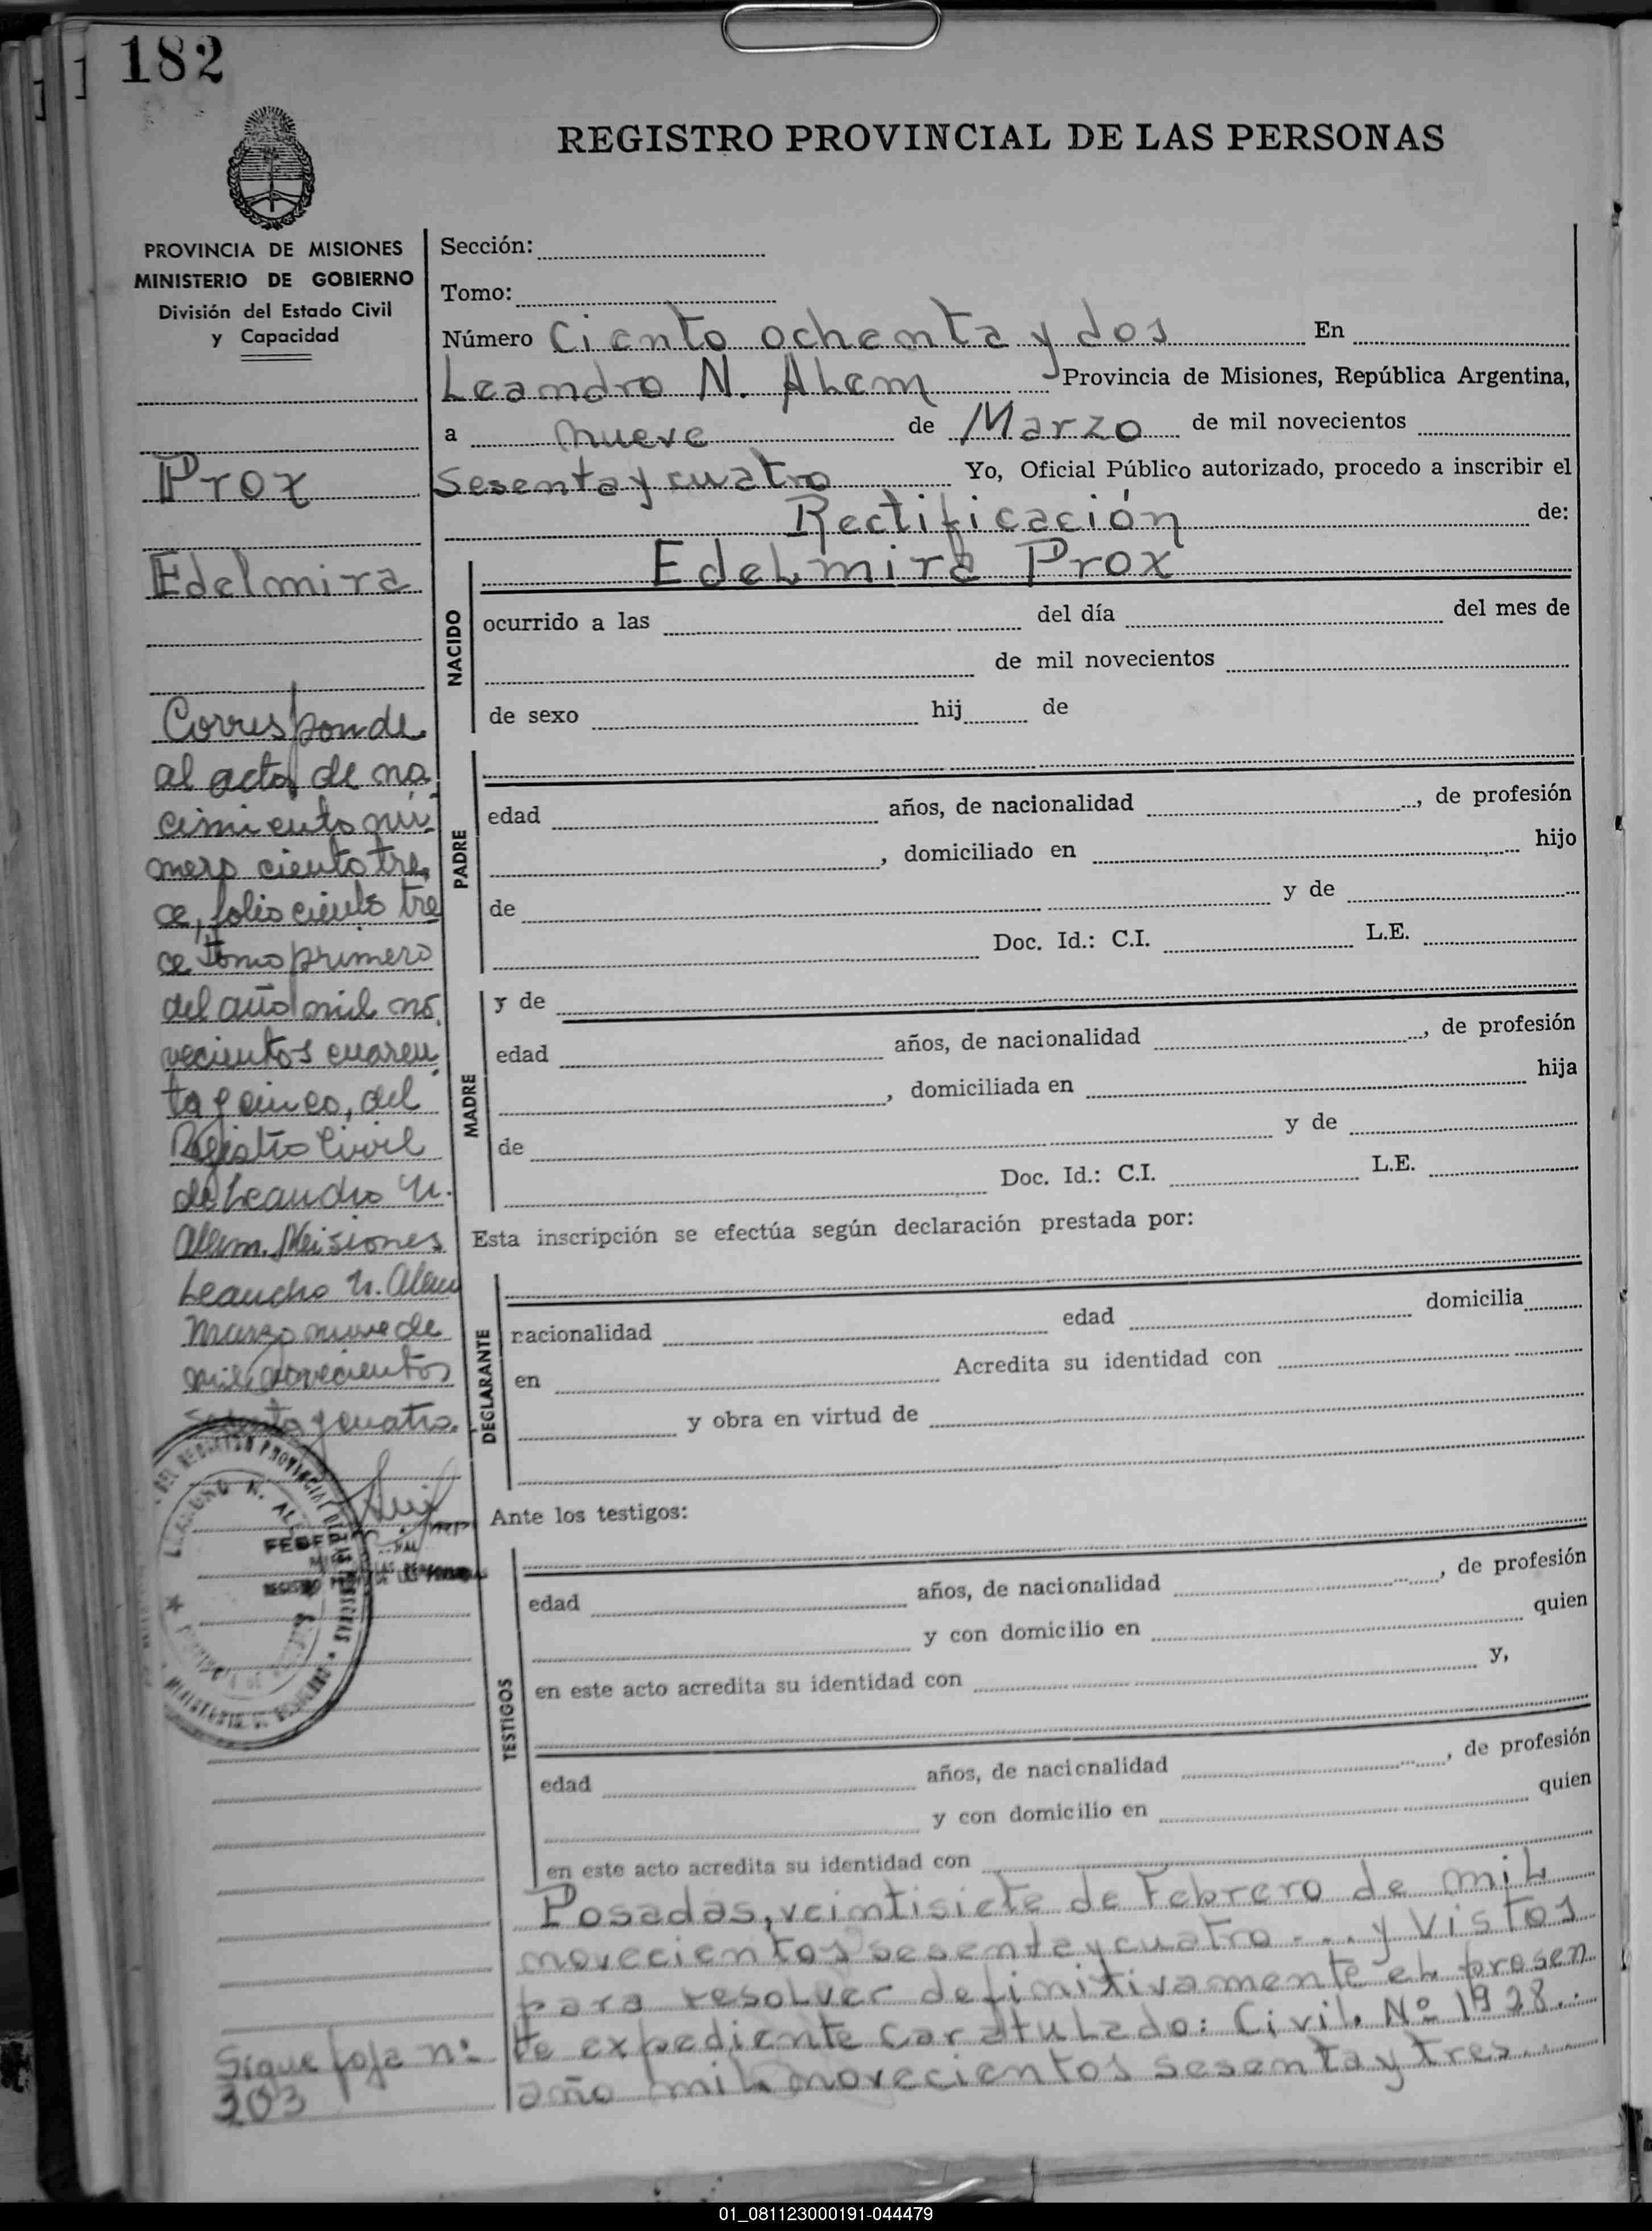 182
REGISTRO PROVINCIAL DE LAS PERSONAS
PROVINCIA DE MISIONES
MINISTERIO DE GOBIERNO
División del Estado Civil
y Capacidad
Prox
Edelmira
Corresponde
al acta de na
cimiento nú-
mero ciento tre,
ce, folio ciento tre
ce tomo primero
del año mil no,
vecientos cuaren
ta y cinco, del
Registro Civil
de Leandro N.
Alem. Misiones
Leandro N. Alem
Marzo nueve de
mil novecientos
sesenta y cuatro.
Sigue foja nº
203
Sección:
Tomo:
Número Ciento ochenta y dos En
Leandro N. Alem Provincia de Misiones, República Argentina,
a nueve de Marzo de mil novecientos
sesenta y cuatro Yo, Oficial Público autorizado, procedo a inscribir el
Rectificación de:
Edelmira Prox
NACIDO
ocurrido a las del día del mes de
de mil novecientos
de sexo hij de
PADRE
edad años, de nacionalidad , de profesión
, domiciliado en hijo
de y de
Doc. Id.: C.I. L.E.
MADRE
y de
edad años, de nacionalidad , de profesión
, domiciliada en hija
de y de
Doc. Id.: C.I. L.E.
Esta inscripción se efectúa según declaración prestada por:
DECLARANTE
nacionalidad edad domicilia
en Acredita su identidad con
y obra en virtud de
Ante los testigos:
TESTIGOS
edad años, de nacionalidad , de profesión
y con domicilio en quien
en este acto acredita su identidad con y,
edad años, de nacionalidad , de profesión
y con domicilio en quien
en este acto acredita su identidad con
Posadas, veintisiete de Febrero de mil
novecientos sesenta y cuatro ... y Vistos
para resolver definitivamente el presen
te expediente caratulado: Civil. Nº 1928..
año mil novecientos sesenta y tres....
01_081123000191-044479